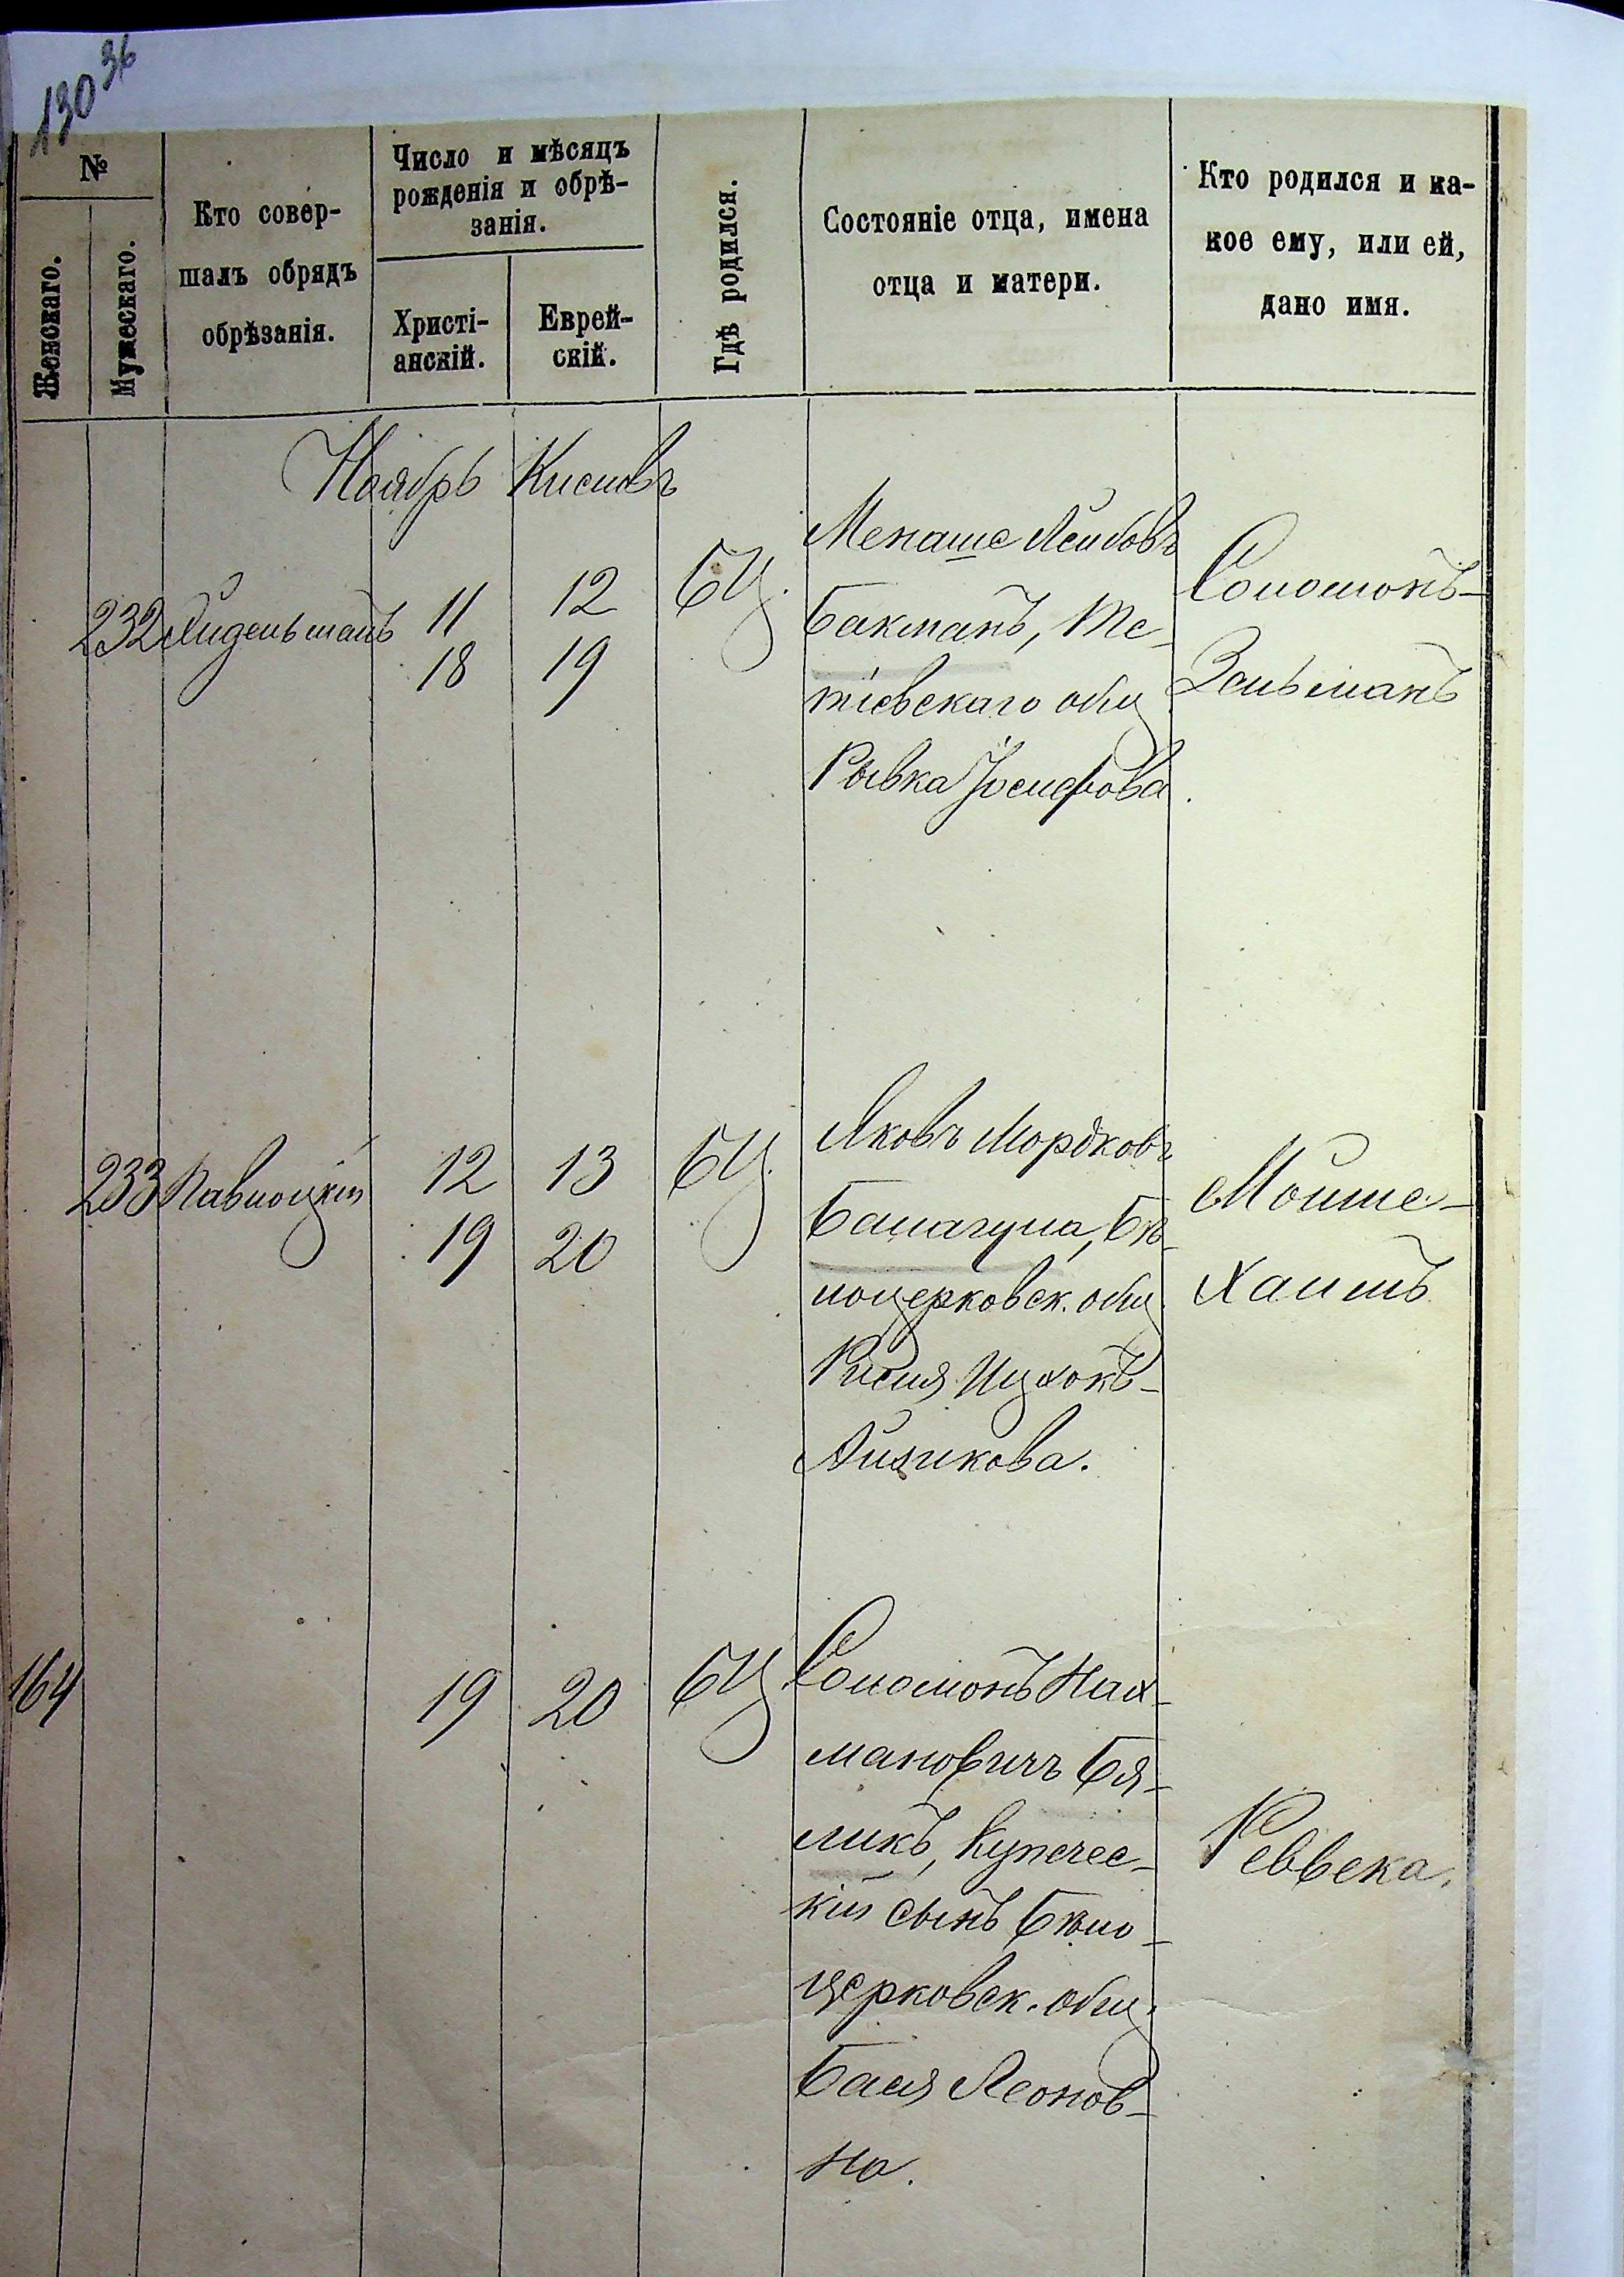 130 36
№
Женскаго.
Мужескаго.
Кто совер-
шалъ обрядъ
обрѣзанія.
Число и мѣсяцъ
рожденія и обрѣ-
занія.
Христі-
анскій.
Еврей-
скій.
Гдѣ родился.
Состояніе отца, имена
отца и матери.
Кто родился и ка-
кое ему, или ей,
дано имя.
Ноябрь Кислевъ
232 11 12 БЦ.
18 19
Менаше Лейбовъ
Бакманъ, Те-
тіевскаго общ
Рывка Іосифова.
Соломонъ-
Зельманъ
233 Павлоцкій 12 13 БЦ.
19 20
Яковъ Мордковъ
Балагула, Бѣ-
лоцерковск. общ.
Рисия Ицхокъ-
Айзикова.
Мойше-
Хаимъ
164 19 20 БЦ.
Соломонъ Нах-
мановичъ Бя-
ликъ, купечес-
кій сынъ Бѣло-
церковск. общ.
Бася Леонов-
на.
Реввека.